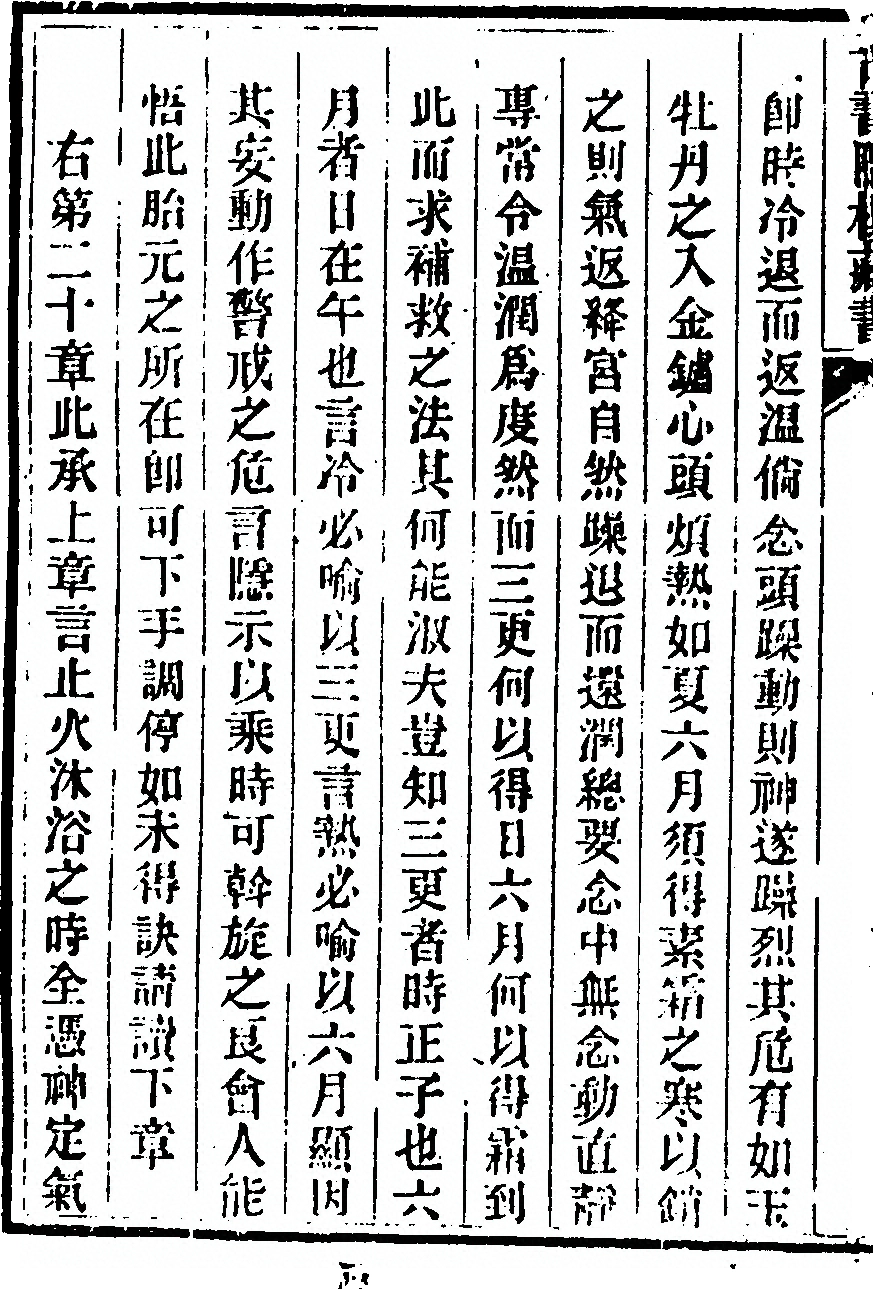 即時冷退而返溫倘念頭躁動則神遂躁烈其危有如玉
牡丹之入金鑪心頭煩熱如夏六月須得素霜之寒以銷
之則氣返絳宮自然躁退而還潤總要念中無念動直靜
專常令溫潤爲度然而三更何以得日六月何以得霜到
此而求補救之法其何能淑夫豈知三更者時正子也六
月者日在午也言冷必喻以三更言熱必喻以六月顯因
其妄動作警戒之危言隱示以乘時可斡旋之良會人能
悟此胎元之所在卽可下手調停如未得訣請讀下章
右第二十章此承上章言止火沐浴之時全憑神定氣